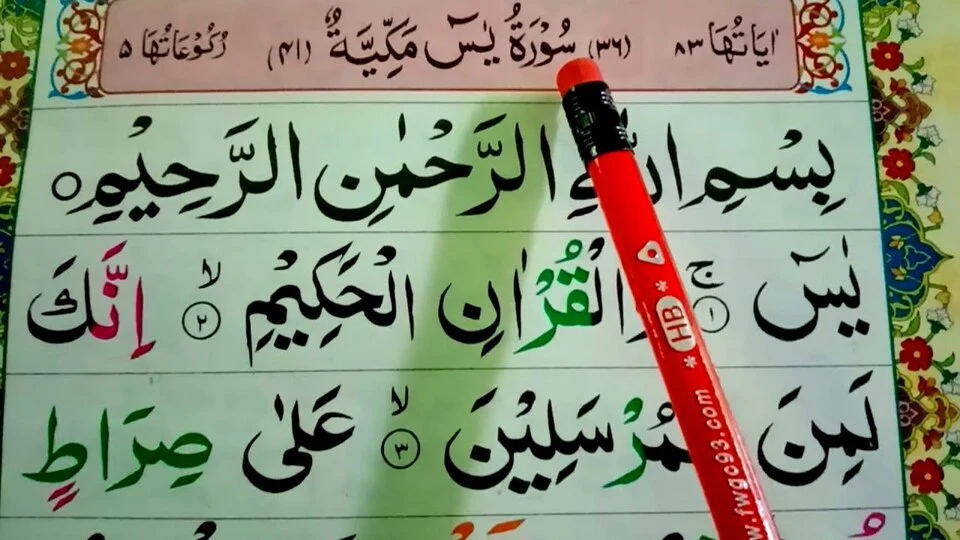 اٰيَاتُهَا ٨٣ (٣٦) سُوْرَةُ يٰسٓ مَكِّيَّةٌ (٤١) رُكُوْعَاتُهَا ٥
بِسْمِ الرَّحْمٰنِ الرَّحِيْمِ
يٰسٓ ۚ ١ الْقُرْاٰنِ الْحَكِيْمِ ۙ ٢ اِنَّكَ
لَمِنَ مُرْسَلِيْنَ ۙ ٣ عَلٰى صِرَاطٍ
* HB *
w.fwgc93.com